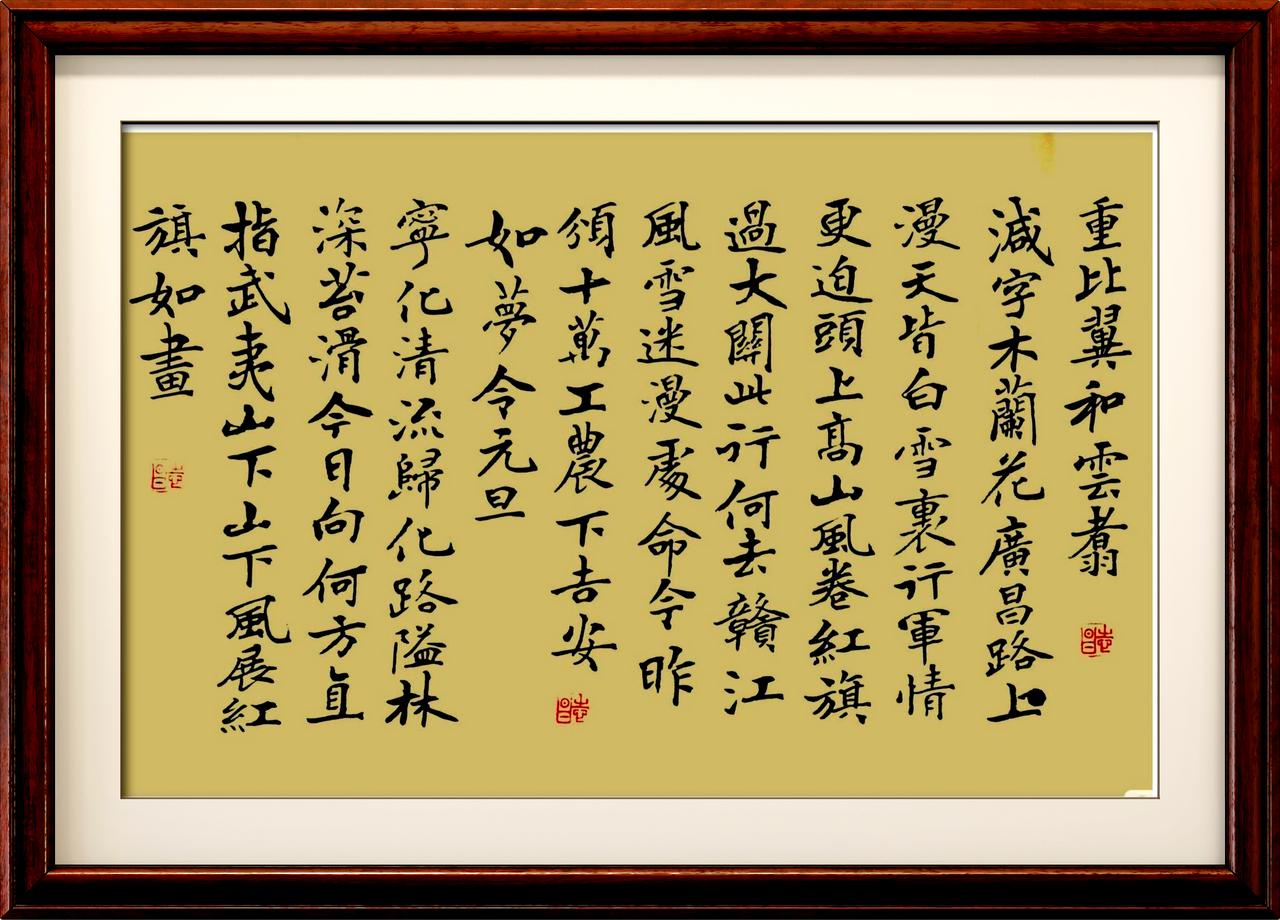 重比翼和雲翥
減字木蘭花廣昌路上
漫天皆白雪裏行軍情
更迫頭上高山風卷紅旗
過大關此行何去贛江
風雪迷漫處命令昨
頒十萬工農下吉安
如夢令元旦
寧化清流歸化路隘林
深苔滑今日向何方直
指武夷山下山下風展紅
旗如畫